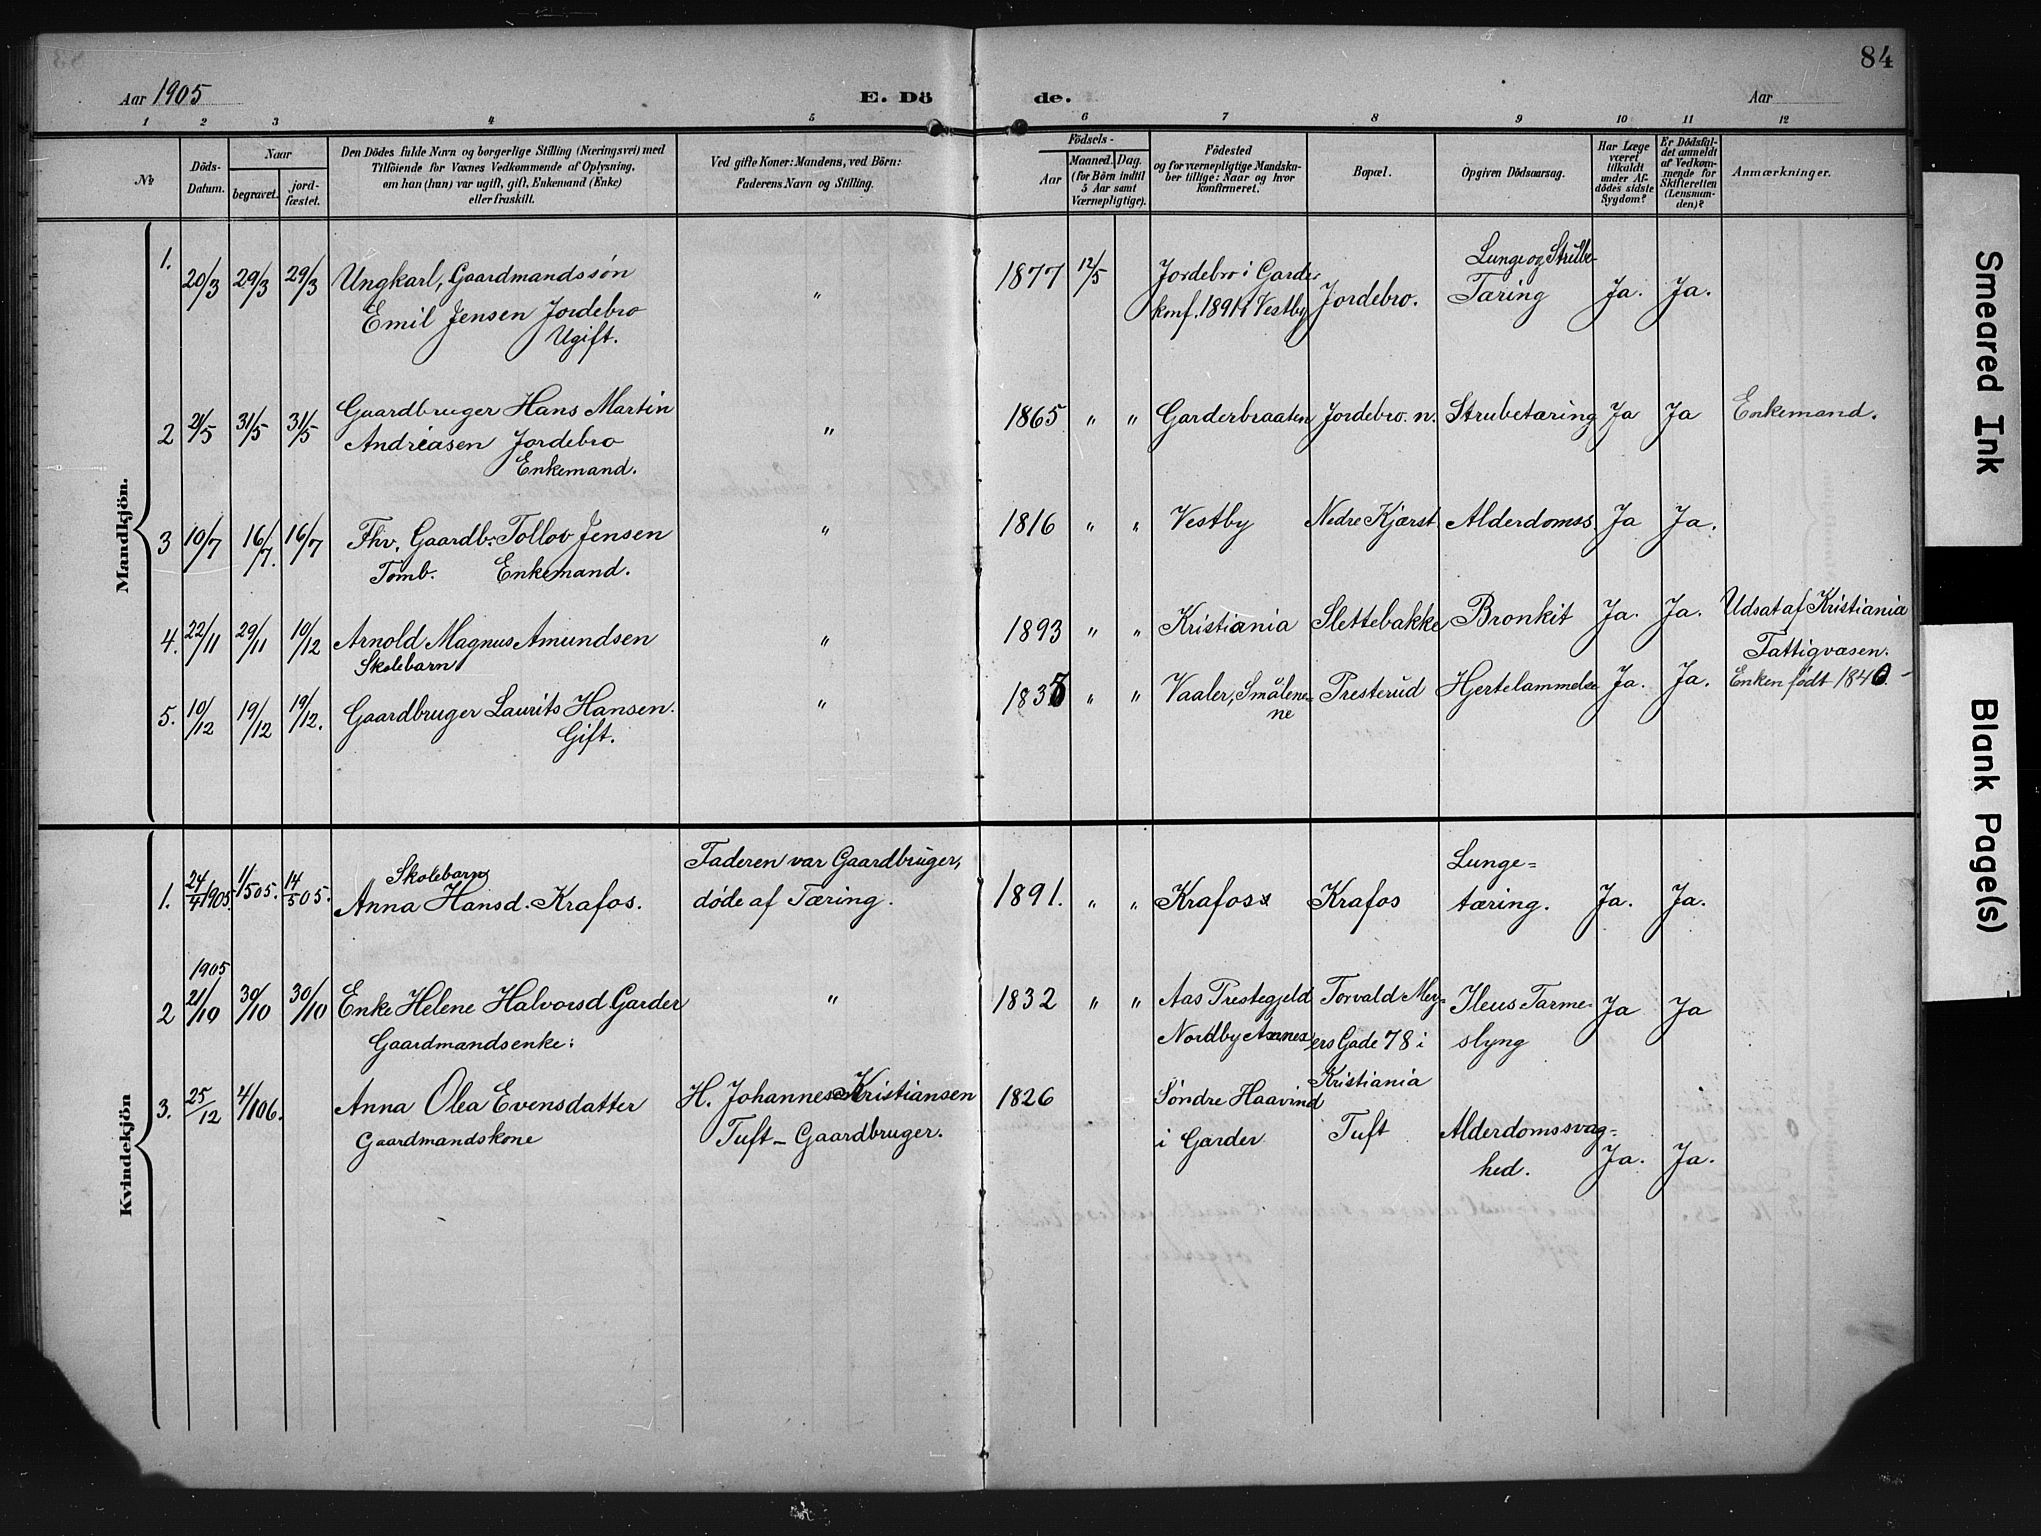 84
Aar 1905
E. Dö de.
Aar
1 2 3 4 5 6 7 8 9 10 11 12
№
Döds-Datum.
Naar
begravet.
jord-fæstet.
Den Dödes fulde Navn og borgerlige Stilling (Næringsvei) med
Tilföiende for Voxnes Vedkommende af Oplysning,
om han (hun) var ugift, gift, Enkemand (Enke)
eller fraskilt.
Ved gifte Koner: Mandens, ved Börn:
Faderens Navn og Stilling.
Födsels-
Aar
Maaned. Dag.
(for Börn indtil
5 Aar samt
Værnepligtige).
Födested
og for værnepligtige Mandska-
ber tillige: Naar og hvor
konfirmeret.
Bopæl.
Opgiven Dödsaarsag.
Har Læge
været
tilkaldt
under Af-
dödes sidste
Sygdom?
Er Dödsfal-
det anmeldt
af Vedkom-
mende for
Skifteretten
(Lensman-
den)?
Anmærkninger.
Mandkjön.
1. 20/3 29/3 29/3 Ungkarl, Gaardmandssøn
Emil Jensen Jordebro
Ugift.
" 1877 12/5 Jordebro i Garder
konf. 1891 i Vestby
Jordebro.
Lunge og Strube-
Tæring
Ja. Ja.
2 21/5 31/5 31/5 Gaardbruger Hans Martin
Andreasen Jordebro
Enkemand.
" 1865 " " Garderbraaten Jordebro. n. Strubetæring Ja Ja Enkemand.
3 10/7 16/7. 16/7 Fhv. Gaardb. Tollov Jensen
Tomb. Enkemand.
" 1816 " " Vestby Nedre Kjærst. Alderdomss. Ja Ja.
4. 22/11 29/11 10/12 Arnold Magnus Amundsen
Skolebarn
" 1893 " " Kristiania Slettebakke Bronkit Ja. Ja. Udsat af Kristiania
Fattigvæsen.
5. 10/12 19/12 19/12. Gaardbruger Laurits Hansen.
Gift.
" " " Vaaler, Smålene=
ne
Presterud Hjertelammelse Ja. Ja. Enken født 1840
Kvindekjön
1. 24/4 1905. 1/5 05. 14/5 05. Skolebarn
Anna Hansd. Krafos.
Faderen var Gaardbruger,
døde af Tæring.
1891. " " Krafos Krafos
Lunge=
tæring.
Ja. Ja.
1905
2 21/10 30/10 30/10 Enke Helene Halvorsd Garder
Gaardmandsenke.
" 1832 " " Aas Prestegjeld
Nordby Annex
Torvald Mey-
ers Gade 78 i
Kristiania
Ileus Tarme-
slyng
Ja Ja
3. 25/12 4/1 06. Anna Olea Evensdatter
Gaardmandskone
H. Johannes Kristiansen
Tuft - Gaardbruger.
1826 Søndre Haavind
i Garder
Tuft
Alderdomssvag-
hed.
Ja. Ja.
Smeared Ink
Blank Page(s)